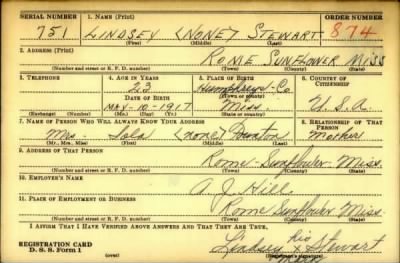 SERIAL NUMBER 1. NAME (Print) ORDER NUMBER
751 LINDSEY (NONE) STEWART 874
(First) (Middle) (Last)
2. ADDRESS (Print)
ROME SUNFLOWER MISS
(Number and street or R. F. D. number) (Town) (County) (State)
3. TELEPHONE 4. AGE IN YEARS 5. PLACE OF BIRTH 6. COUNTRY OF CITIZENSHIP
23 Humphreys-Co
DATE OF BIRTH (Town or county)
MAY-10-1917 Miss. U.S.A.
(Exchange) (Number) (Mo.) (Day) (Yr.) (State or country)
7. NAME OF PERSON WHO WILL ALWAYS KNOW YOUR ADDRESS 8. RELATIONSHIP OF THAT PERSON
Mrs- (none) Mother
(Mr., Mrs., Miss) (First) (Middle) (Last)
9. ADDRESS OF THAT PERSON
Rome-Sunflower-Miss.
(Number and street or R. F. D. number) (Town) (County) (State)
10. EMPLOYER'S NAME
A. J. Hill
11. PLACE OF EMPLOYMENT OR BUSINESS
Rome Sunflower Miss.
(Number and street or R. F. D. number) (Town) (County) (State)
I AFFIRM THAT I HAVE VERIFIED ABOVE ANSWERS AND THAT THEY ARE TRUE.
REGISTRATION CARD
D. S. S. Form 1
(over)
his
Lindsey x Stewart
(Registrant's signature)